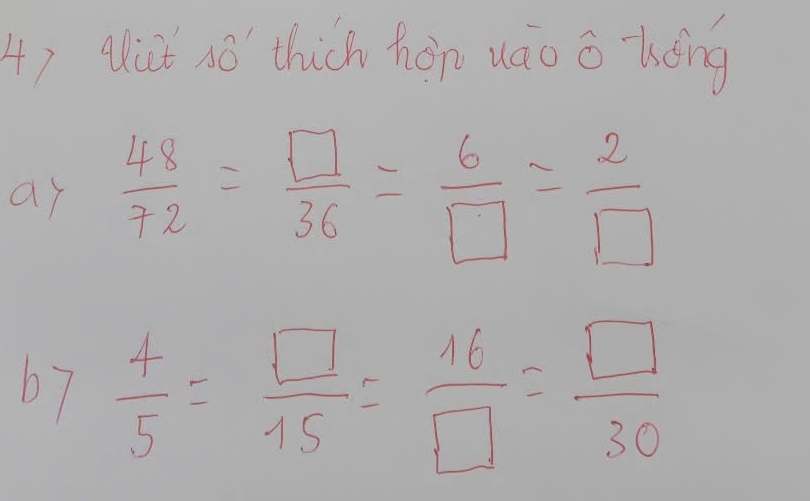 4) Viết số thích hợp vào ô trống
a) 48/72 = □/36 = 6/□ = 2/□
b) 4/5 = □/15 = 16/□ = □/30